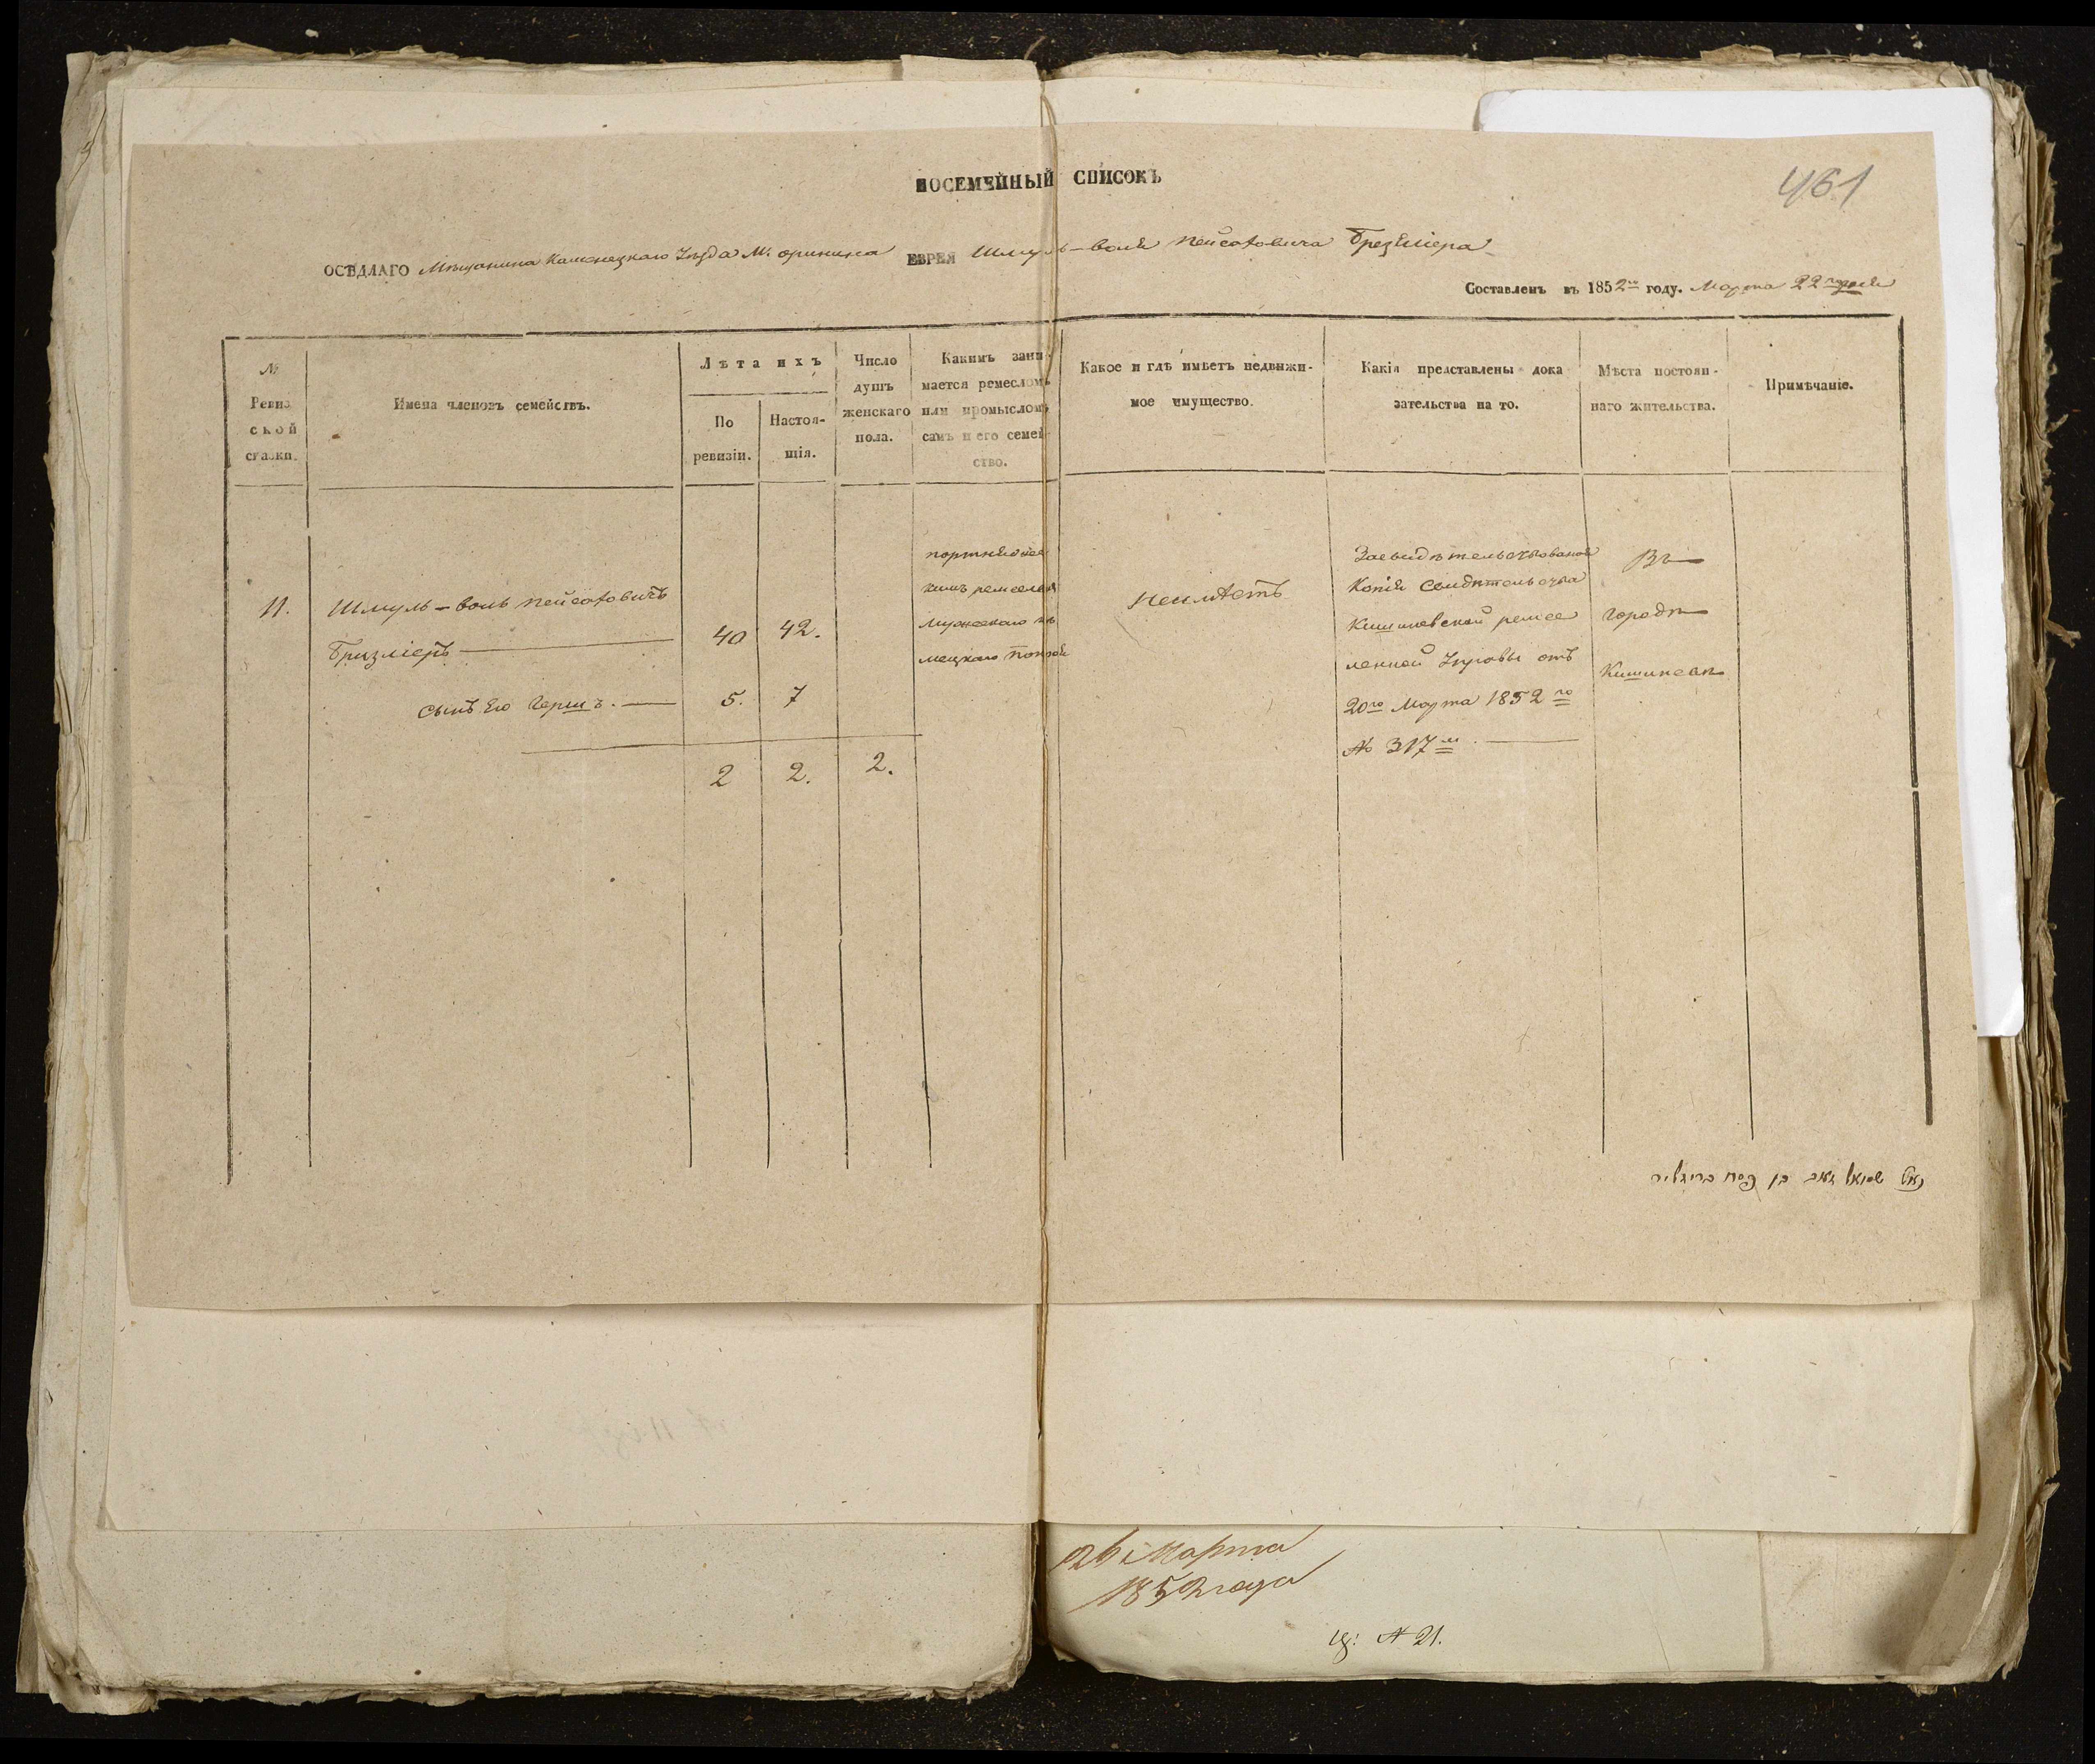 ПОСЕМЕЙНЫЙ СПИСОКЪ
461
ОСѢДЛАГО Мѣщанина Каменецкаго Уѣзда М. Оринина ЕВРЕЯ Шмуль-Воля Пейсаховича Брезлiера
Составленъ въ 1852го году. Марта 22
№ Ревиз ской сказки.
Имена членовъ семействъ.
Лѣта ихъ
По ревизіи.
Настоя- щія.
Число душъ женскаго пола.
Какимъ зани- мается ремесломъ или промысломъ самъ и его семей- ство.
Какое и гдѣ имѣетъ недвижи- мое имущество.
Какія представлены дока зательства на то.
Мѣста постоян- наго жительства.
Примѣчаніе.
11.
Шмуль-Воль Пейсаховичъ
Бризліеръ
40
42.
сынъ Его Гершъ.
5.
7
2
2.
2.
портняжес
кимъ ремесле
Мужескаго не
мецкаго покроя
Неимѣетъ
Засвидѣтельствованой
Копія Свидѣтельства
Кишиневской ремес
ленной Управы отъ
20го Марта 1852го
№ 317м
Въ
городѣ
Кишиневѣ
נאם שמואל זאב בן פסח ברیזליר
26 Марта
1852 года
№ 21.